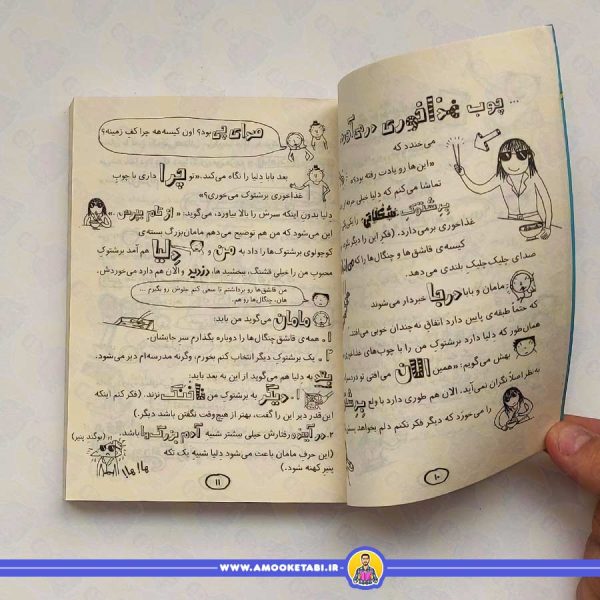 ... چوب غذاخوری درمی‌آورد
می‌خندد که
«این‌ها رو یادت رفته بود؟»
تماشا می‌کنم که دنیا خیلی حرفه‌ای
برشتوک شکلاتی
غذاخوری برمی‌دارد. (فکر این را دیگر نکرده
کیسه‌ی قاشق‌ها و چنگال‌ها را که
صدای جلیک جلیک بلندی می‌دهد.
مامان و بابا درجا خبردار می‌شوند
که حتماً طبقه‌ی پایین دارد اتفاق نه چندان خوبی می‌افتد.
همان‌طور که دنیا دارد برشتوک من را با چوب‌های غذاخوری
بهش می‌گویم: «همین الان می‌افتی تو دردسر
به نظر اصلاً نگران نمی‌آید. الان هم طوری دارد با ولع برشتوک
را می‌خورَد که دیگر فکر نکنم دلم بخواهد
۱۰
صدای چی بود؟ اون کیسه‌هه چرا کف زمینه؟
بعد بابا دنیا را نگاه می‌کند. «تو چرا داری با چوبِ
غذاخوری برشتوک می‌خوری؟»
دنیا بدون اینکه سرش را بالا بیاورد، می‌گوید: «از تام بپرس.»
این می‌شود که من هم توضیح می‌دهم مامان‌بزرگ بسته‌ی
کوچولوی برشتوک‌ها را داد به من و دنیا هم آمد برشتوک
محبوب من را خیلی قشنگ، ببخشید ها، دزدید و الان هم دارد می‌خوردش.
من قاشق‌ها رو برداشتم تا سعی کنم جلوش رو بگیرم ...
هان، چنگال‌ها رو هم.
مامان می‌گوید من باید:
۱. همه‌ی قاشق چنگال‌ها را دوباره بگذارم سر جایشان.
۲. یک برشتوک دیگر انتخاب کنم بخورم، وگرنه مدرسه‌ام دیر می‌شود.
بعد به دنیا هم می‌گوید از این به بعد باید:
۱. دیگر به برشتوک من ناخنک نزند. (فکر کنم اینکه
این‌قدر دیر این را گفت، بهتر از هیچ‌وقت نگفتن باشد دیگر.)
۲. در آینده رفتارش خیلی بیشتر شبیه آدم بزرگ‌ها باشد.
(این حرف مامان باعث می‌شود دنیا شبیه یک تکه
پنیر کهنه شود.)
(بوگند پنیر)
ها! ها!
۱۱
WWW.AMOOKETABI.IR